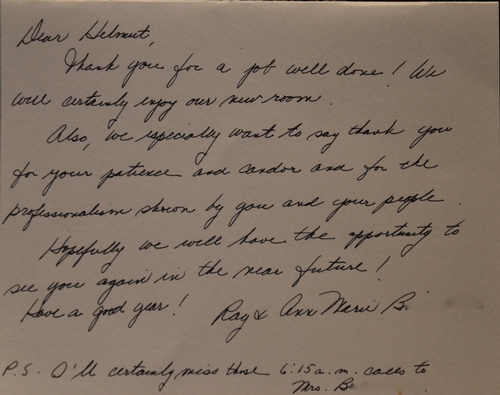 Dear Helmut,
Thank you for a job well done! We
will certainly enjoy our new room.
Also, we especially want to say thank you
for your patience and candor and for the
professionalism shown by you and your people.
Hopefully we will have the opportunity to
see you again in the near future!
Have a good year!
Ray & Ann Marie B.
P.S. I'll certainly miss those 6:15 a.m. calls to
Mrs. B.